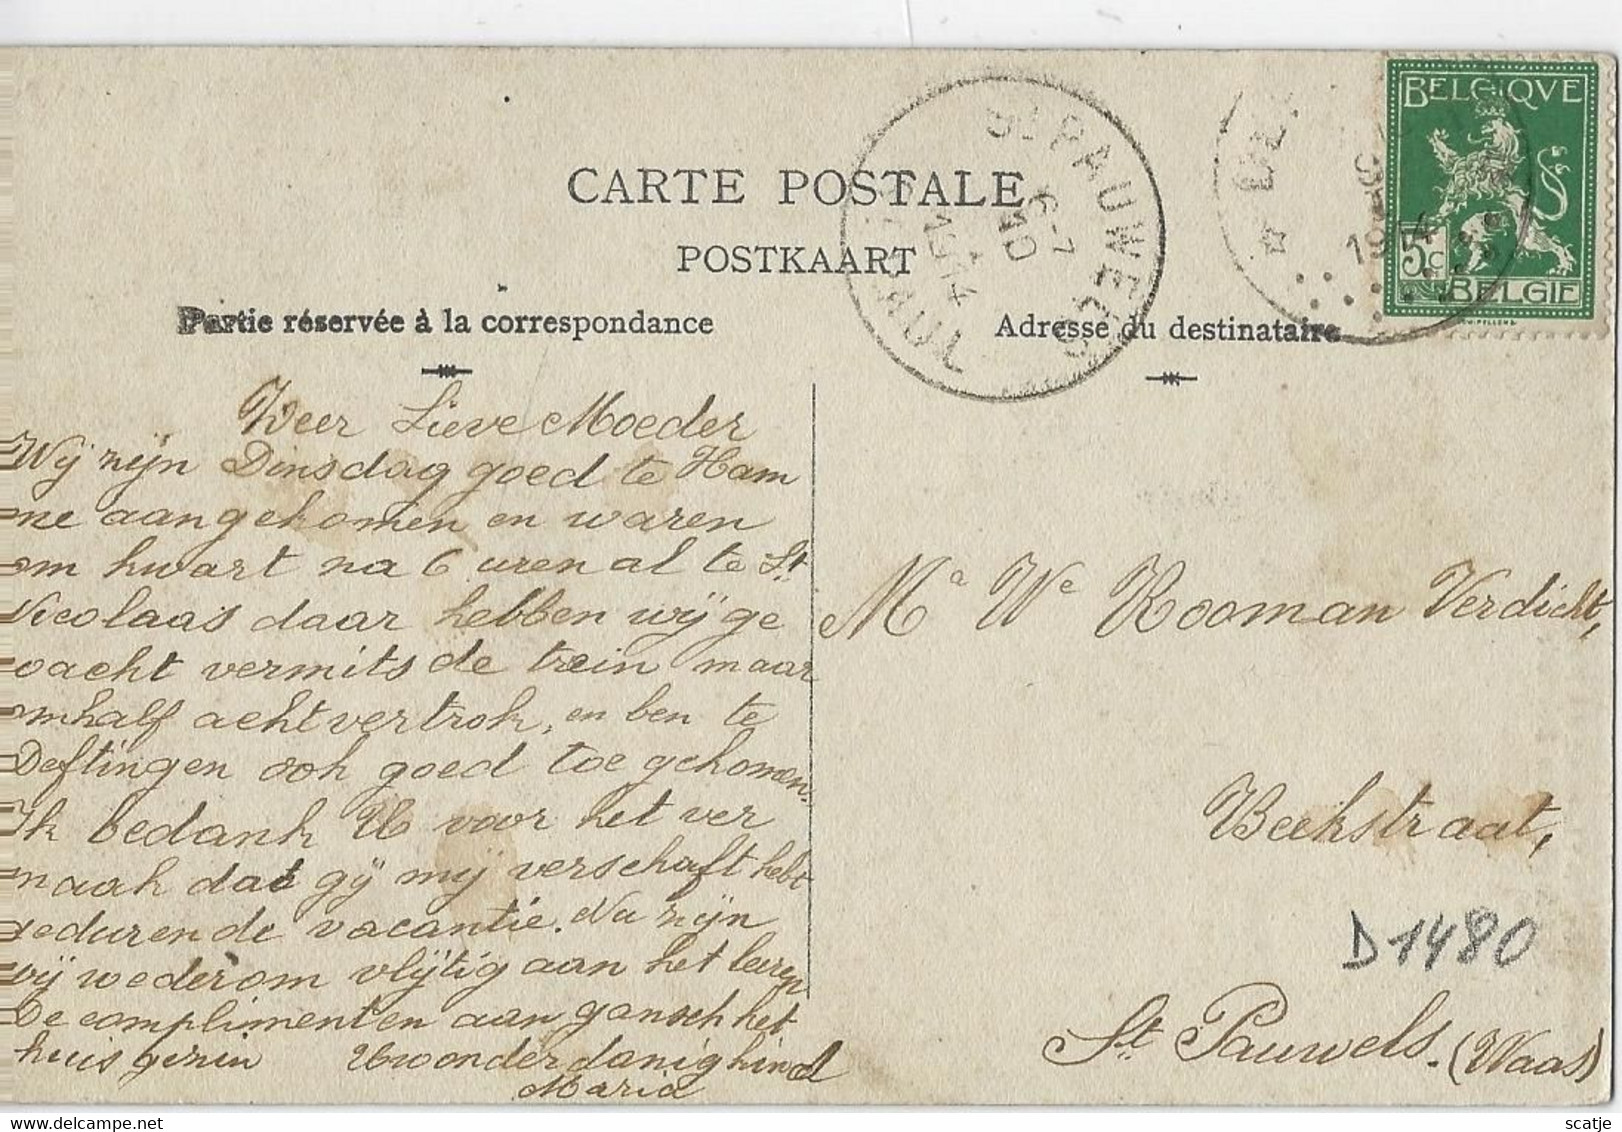 CARTE POSTALE
POSTKAART
Partie réservée à la correspondance
Adresse du destinataire
BELGIQVE
5c
BELGIE
St PAUWELS
6-7
10
1914
Weer Lieve Moeder
Wij zijn Dinsdag goed te Ham
me aangekomen en waren
om kwart na 6 uren al te St
Nicolaas daar hebben wij ge
wacht vermits de trein maar
omhalf acht vertrok, en ben te
Deftingen ook goed toe gekomen.
Ik bedank U voor het ver
maak dat gÿ mÿ verschaft hebt
gedurende de vacantie. Nu zijn
wij wederom vlijtig aan het leeren
De complimenten aan gansch het
huisgezin Uw onderdanig kind
Maria
Ma We Rooman Verdicht,
Beekstraat,
D1480
St. Pauwels. (Waas)
scatje